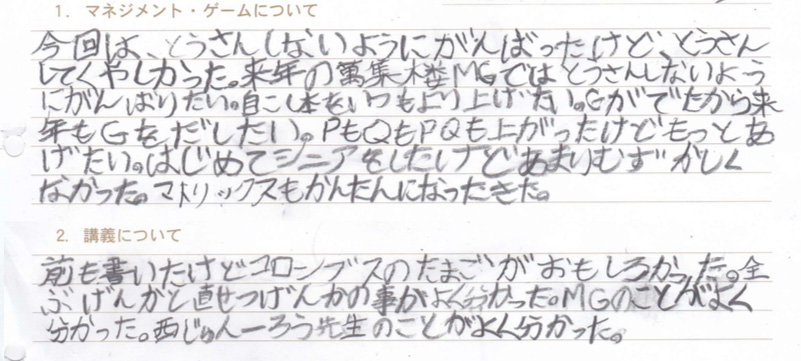 1. マネジメント・ゲームについて
今回は、とうさんしないようにがんばったけど、とうさん
してくやしかった。来年の萬集楼MGではとうさんしないよう
にがんばりたい。自こし本をいつもより上げたい。Gがでたから来
年もGをだしたい。PもQもPQも上がったけどもっとあ
げたい。はじめてシニアをしたけどあまりむずかしく
なかった。マトリックスもかんたんになったきた。
2. 講義について
前も書いたけどコロンブスのたまごがおもしろかった。全
ぶげんかと直せつげんかの事がよく分かった。MGのことがよく
分かった。西じゅんーろう先生のことがよく分かった。